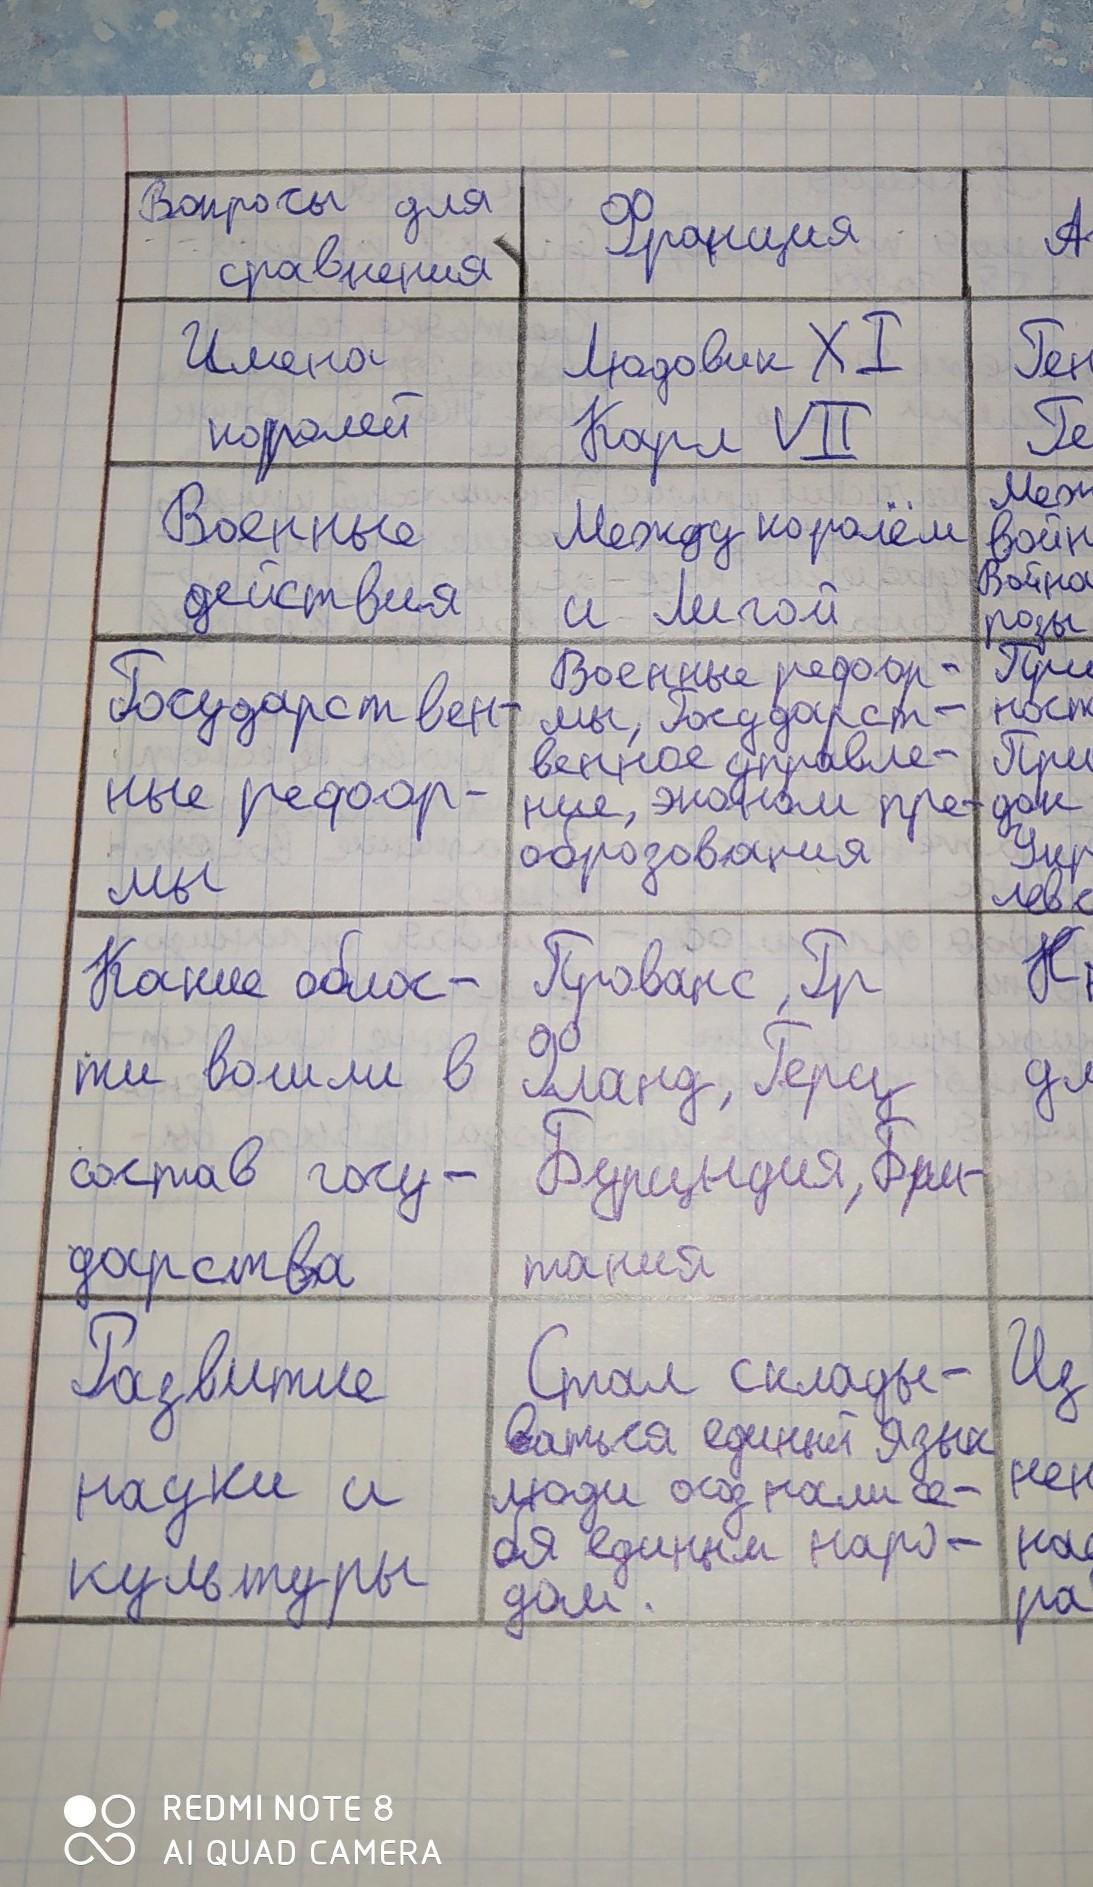 Вопросы для
сравнения
Франция
А
Имена
королей
Людовик XI
Карл VII
Ген
Ге
Военные
действия
Между королём
и Лигой
Меж
войн
Война
розы
Государствен-
ные рефор-
мы
Военные рефор-
мы, Государст-
венное управле-
ние, эконом пре-
образования
При
ност
При
док
Укр
левс
Какие облас-
ти вошли в
состав госу-
дарства
Прованс, Гр
Фланд, Герц
Бургундия, Бри-
тания
дл
Развитие
науки и
культуры
Стал склады-
ваться единый язык
люди осознали се-
бя единым наро-
дом.
Из
нен
на
ра
REDMI NOTE 8
AI QUAD CAMERA